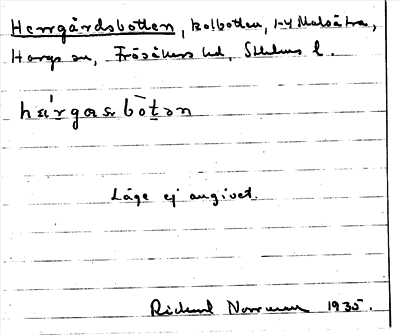 Herrgårdsbotten, kolbotten, 1-4 Malsätra,
Hargs sn, Frösåkers hd, Sthlms l.
Läge ej angivet.
Rickard Norrman 1935.